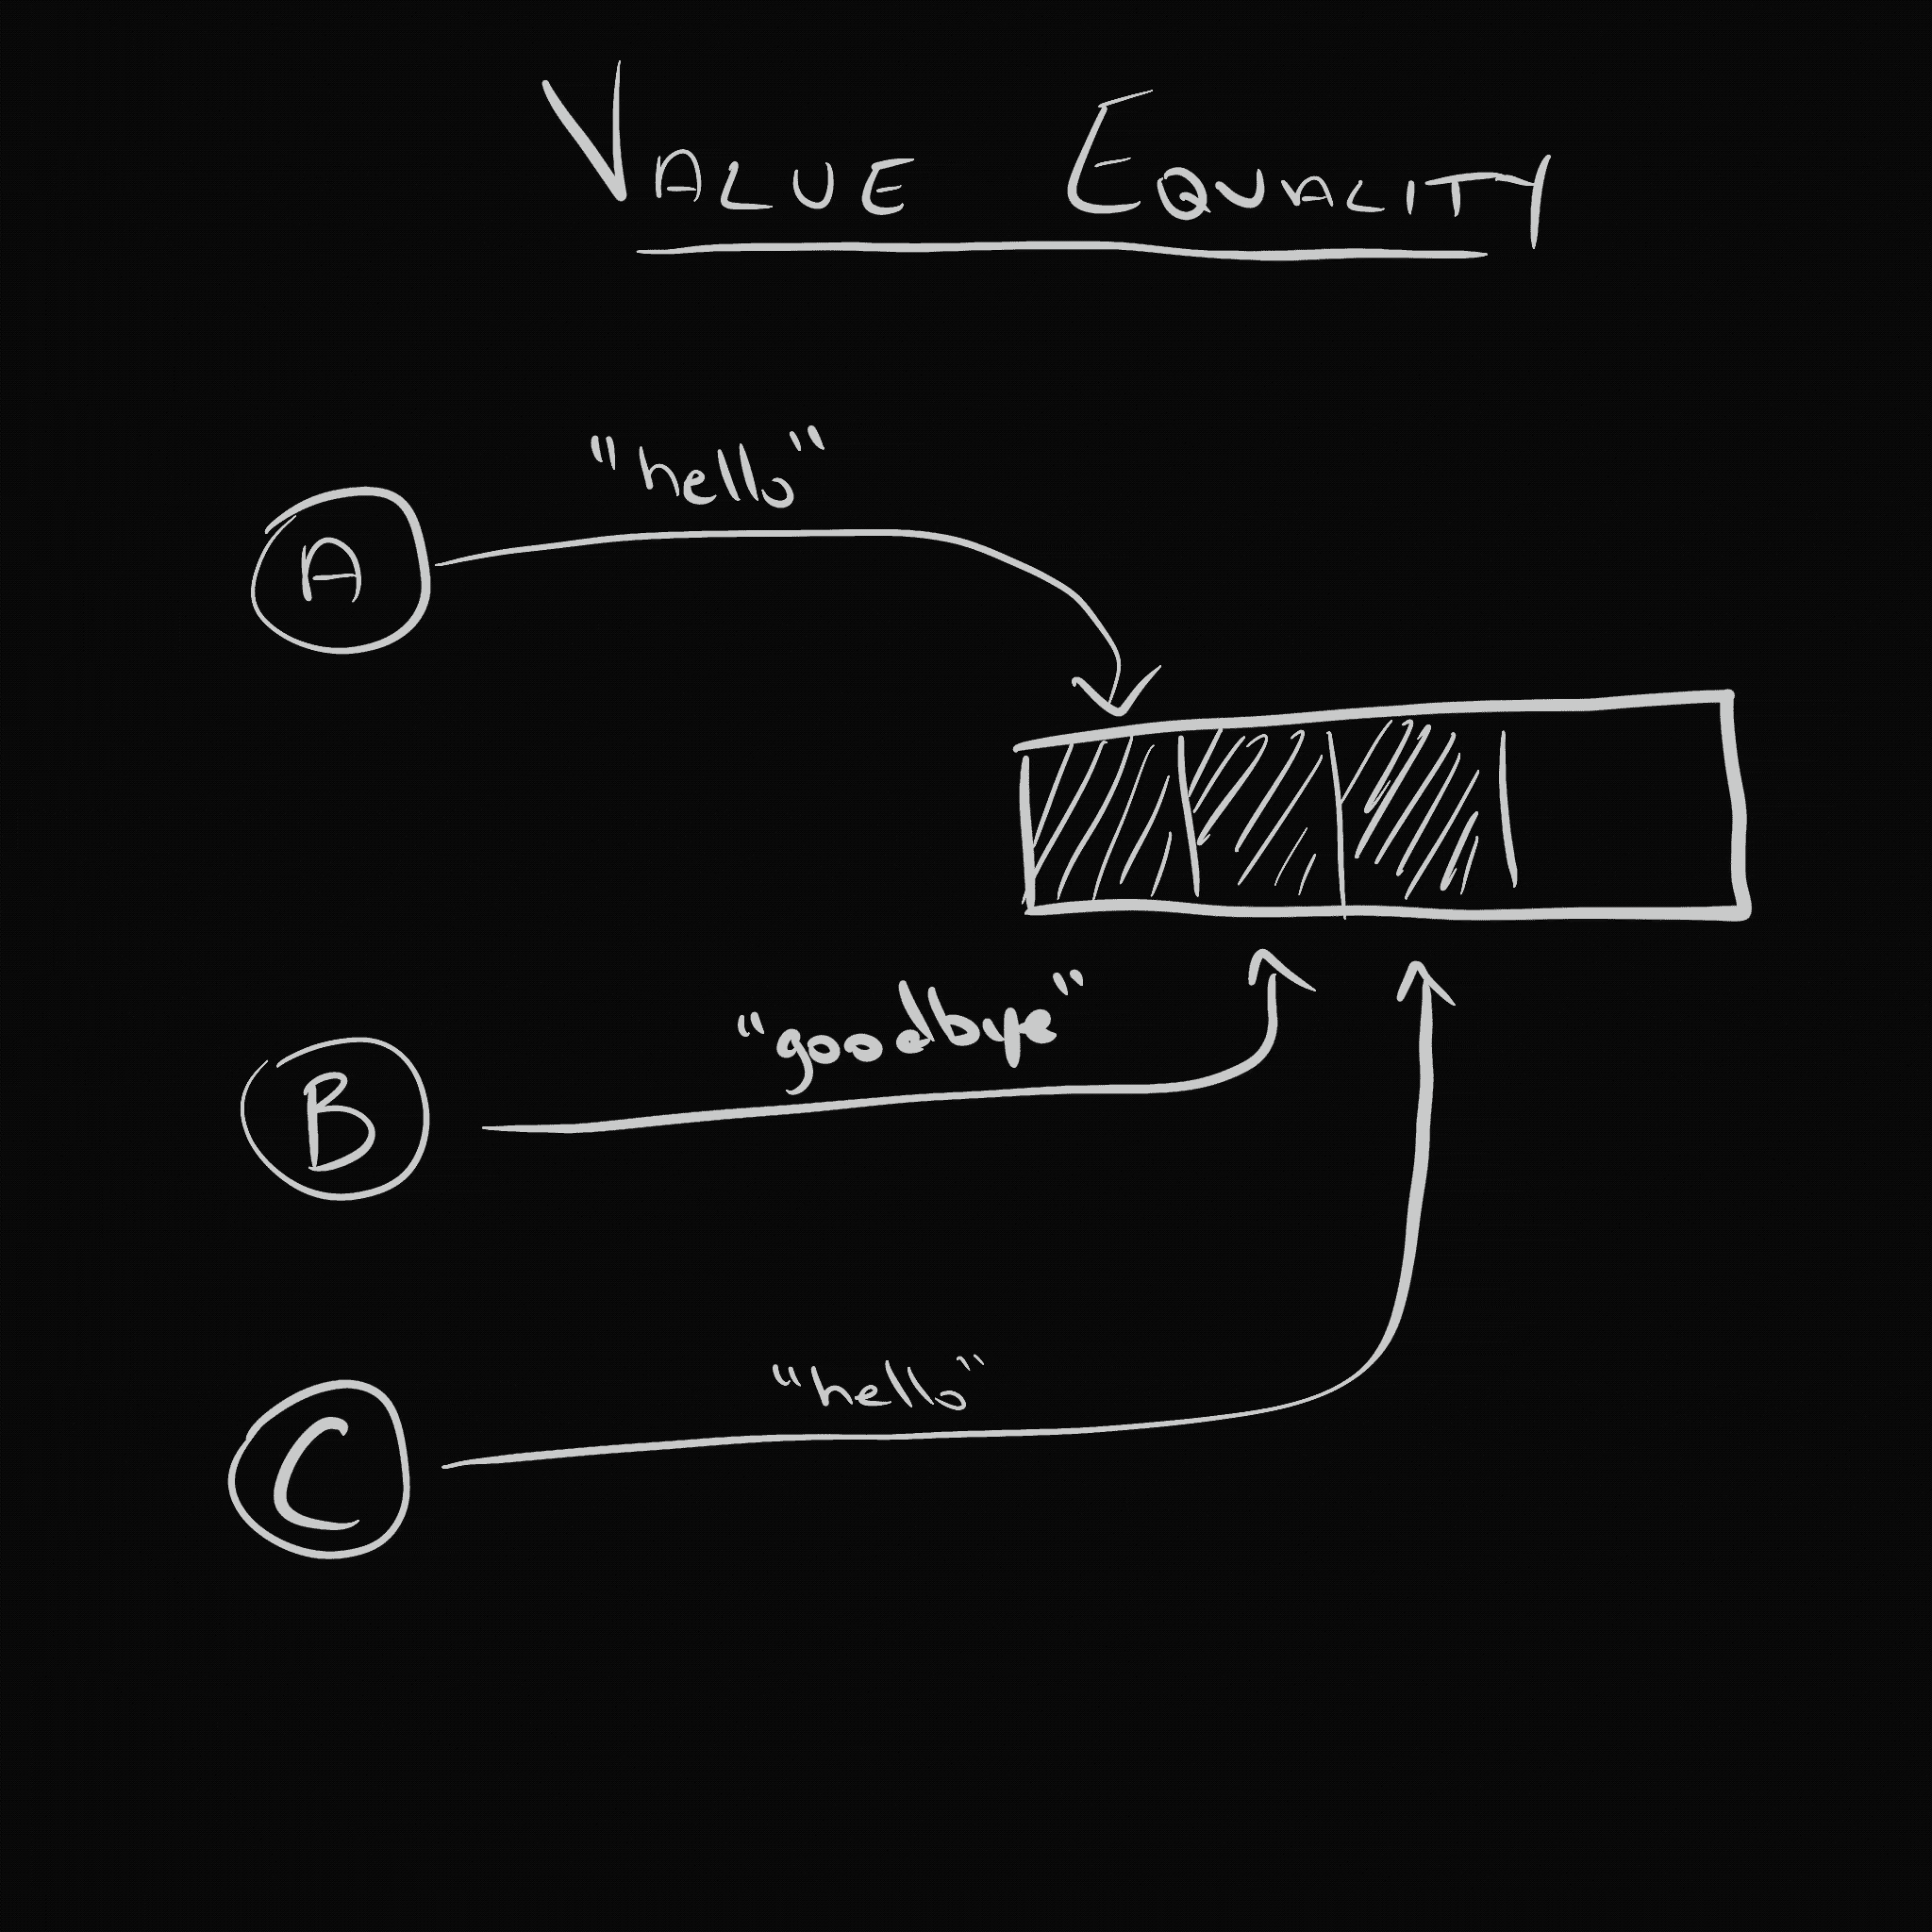 VALUE EQUALITY
"hello"
A
"goodbye"
B
"hello"
C